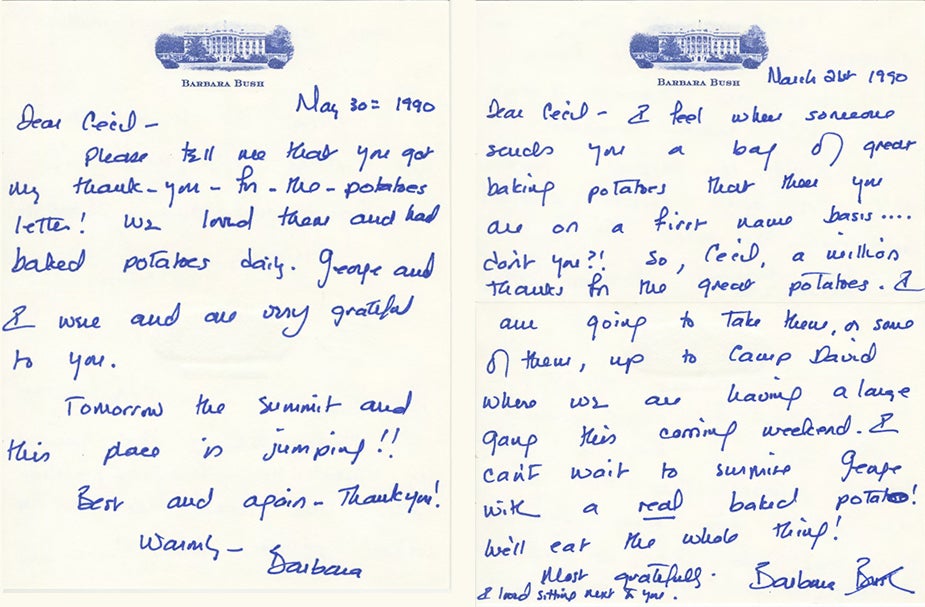 BARBARA BUSH
May 30= 1990
Dear Cecil -
Please tell me that you got
my thank-you-for-the-potatoes
letter! We loved them and had
baked potatoes daily. George and
I were and are very grateful
to you.
Tomorrow the summit and
this place is jumping!!
Best and again - Thank you!
Warmly -
Barbara
BARBARA BUSH
March 21st 1990
Dear Cecil - I feel when someone
sends you a bag of great
baking potatoes that then you
are on a first name basis....
don't you?! So, Cecil, a million
thanks for the great potatoes. I
am going to take them, or some
of them, up to Camp David
where we are having a large
gang this coming weekend. I
can't wait to surprise George
with a real baked potato!
We'll eat the whole thing!
Most gratefully.
Barbara Bush
I loved sitting next to you.